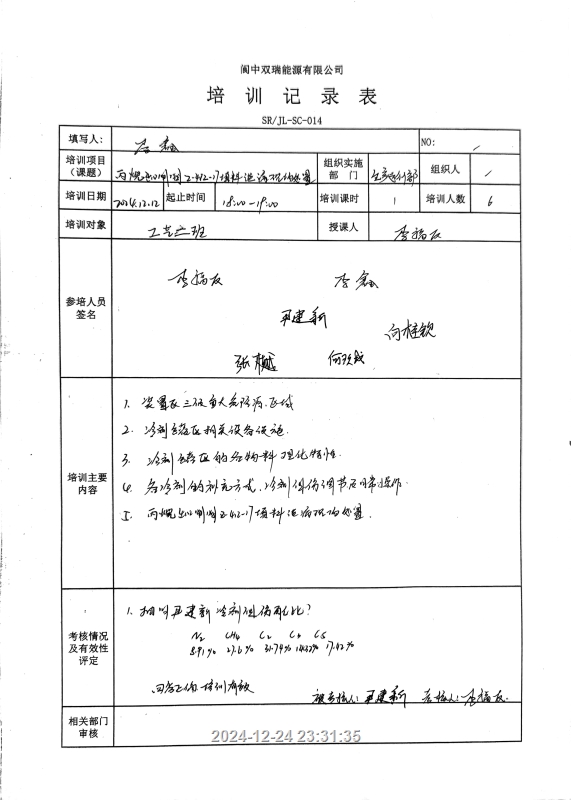 阆中双瑞能源有限公司
培训记录表
SR/JL-SC-014
填写人: 李鑫 NO: /
培训项目(课题) 组织实施部门 组织人 /
培训日期 2024.12.12 起止时间 18:00-19:00 培训课时 1 培训人数 6
培训对象 工艺三班 授课人 李福友
参培人员签名
李福友 李鑫
尹建新
向梓钦
张
何
培训主要内容
1. 装置区三级重大危险源区域
2. 冷剂储存区相关设备设施.
3. 冷剂储存区的各物料理化特性.
4. 各冷剂的补充方式,冷剂组份调节及日常操作.
5. 填料泄漏现场处置.
考核情况及有效性评定
1. 抽问尹建新冷剂组份配比?
N₂ CH₄ C₂ C₃ C₅
8.91% 27.6% 31.79% 17.42%
回答正确 培训有效
被考核人: 尹建新 考核人: 李福友.
相关部门审核
2024-12-24 23:31:35